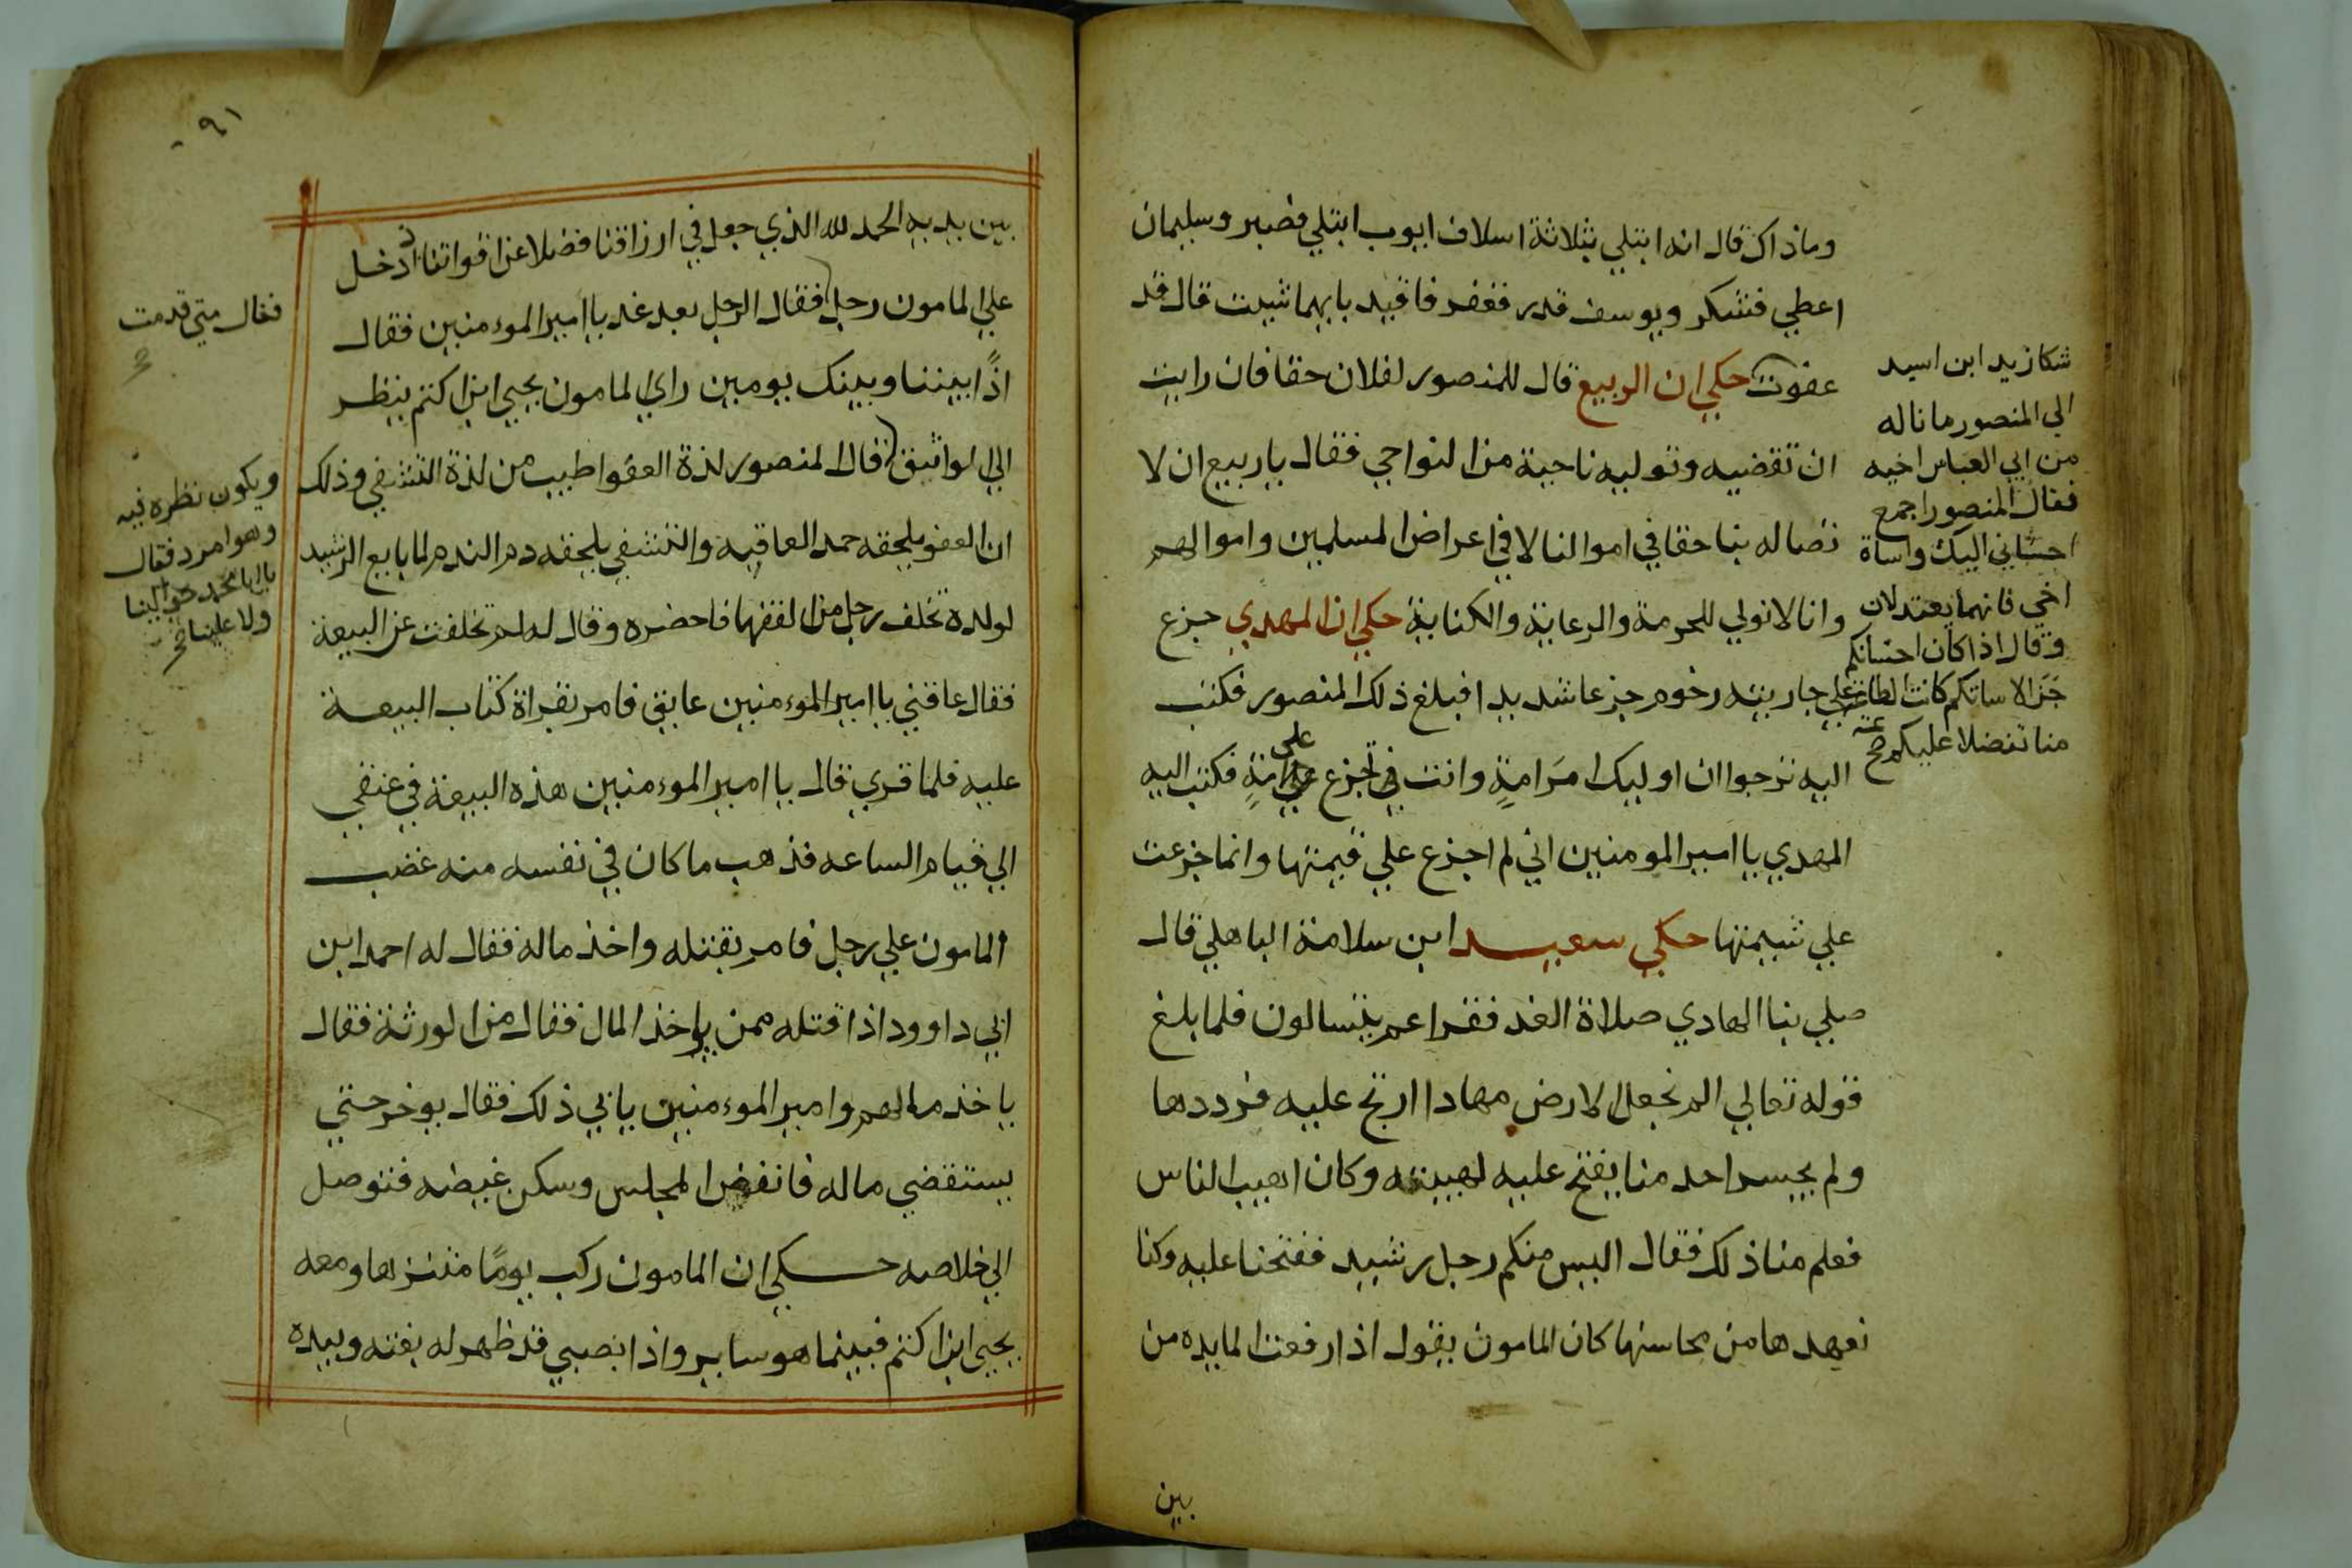 وماذاك قال انه ابتلي بثلاثة اسلاف ايوب ابتلي فصبر وسليمان
اعطي فشكر ويوسف قدر فغفر فاقيد بايهما شيت قال قد
عفوت حكي ان الربيع قال للمنصور لفلان حقا فان رايت
ان تقضيه وتوليه ناحية من النواحي فقال ياربيع ان لا
تصاله بنا حقا في اموالنا لا في اعراض المسلمين واموالهم
وانا لا نولي للحرمة والرعاية والكناية حكي ان المهدي جزع
علي جاريته رخوم جزعا شديدا فبلغ ذلك المنصور فكتب
اليه نرجوا ان اوليك امر امة وانت في تجزع على امة فكتب اليه
المهدي يا امير المومنين اني لم اجزع علي قيمتها وانما جزعت
علي شيمتها حكي سعيد ابن سلامة الباهلي قال
صلي بنا الهادي صلاة الغد فقرا عم يتسالون فلما بلغ
قوله تعالي الم نجعل الارض مهادا ارتج عليه فرددها
ولم يجسر احد منا يفتح عليه لهيبته وكان اهيب الناس
فعلم منا ذلك فقال اليس منكم رجل رشيد ففتحنا عليه وكنا
نعهدها من محاسنها كان المامون يقول اذا رفعت المايده من
بين
شكا زيد ابن اسيد
الي المنصور ما ناله
من ابي العباس اخيه
فقال المنصور اجمع
احساني اليك واساة
اخي فانهما يعتدلان
وقال اذا كان احسانكم
جزا لاساتكم كانت الطاعة
منا تفضلا عليكم صح
٩١
بين يديه الحمد لله الذي جعل في ارزاقنا فضلا عن اقواتنا ادخل
علي المامون رجل فقال الرجل بعد غد يا امير الموءمنين فقال
اذًا بيننا وبينك يومين راي المامون يحيي ابن اكثم ينظر
الي الواثيق قال المنصور لذة العفو اطيب من لذة التشفي وذلك
ان العفو يلحقه حمد العاقبه والتشفي يلحقه دم الندم لما بايع الرشيد
لولده تخلف رجل من الفقها فاحضره وقال له لم تخلفت عن البيعة
فقال عاقني يا امير الموءمنين عايق فامر بقراة كتاب البيعة
عليه فلما قري قال يا امير الموءمنين هذه البيعة في عنقي
الي قيام الساعه فذهب ما كان في نفسه منه غضب
المامون علي رجل فامر بقتله واخذ ماله فقال له احمد ابن
ابي داوود اذا قتلته ممن ياخذ المال فقال من الورثة فقال
ياخذ مالهم وامير الموءمنين يابي ذلك فقال يوخر حتي
يستقضي ماله فانفض المجلس وسكن غيضه فتوصل
الي خلاصه حكي ان المامون ركب يومًا متنزها ومعه
يحيي ابن اكثم فبينما هو ساير واذا بصبي قد ظهر له بغتة وبيده
فقال متي قدمت
ويكون نظره فيه
وهو امرد فقال
يا ابا محمد حوالينا
ولا علينا صح